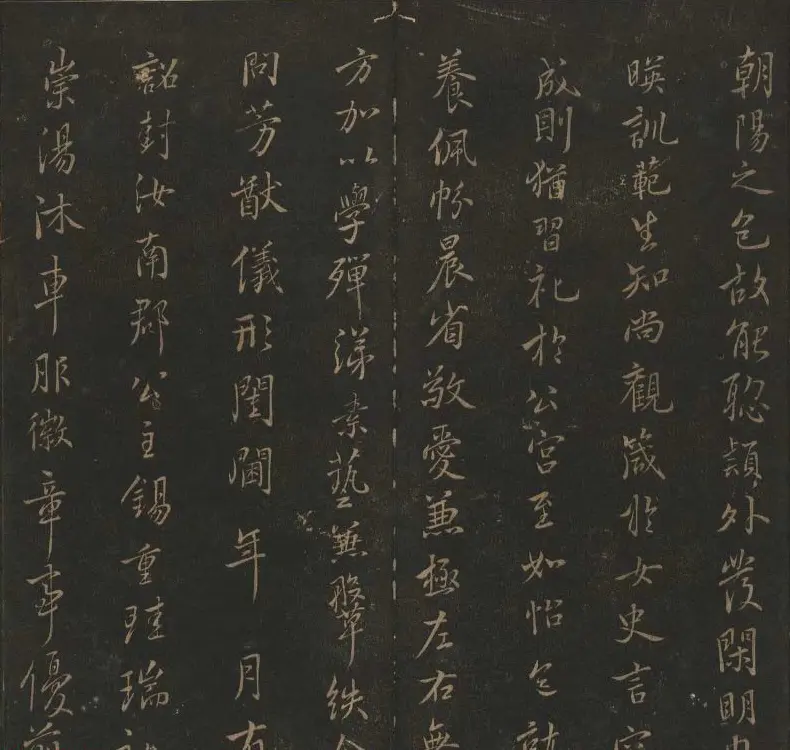 朝陽之色故能聡穎外發閑明
暎訓範生知尚觀箴於女史言容
成則猶習礼於公宮至如怡色就
養佩帉晨省敬愛兼極左右無
方加以學殫綈素藝兼鞶紩令
問芳猷儀形閨閫年 月有
詔封汝南郡公主錫重珪瑞
崇湯沐車服徽章事優前